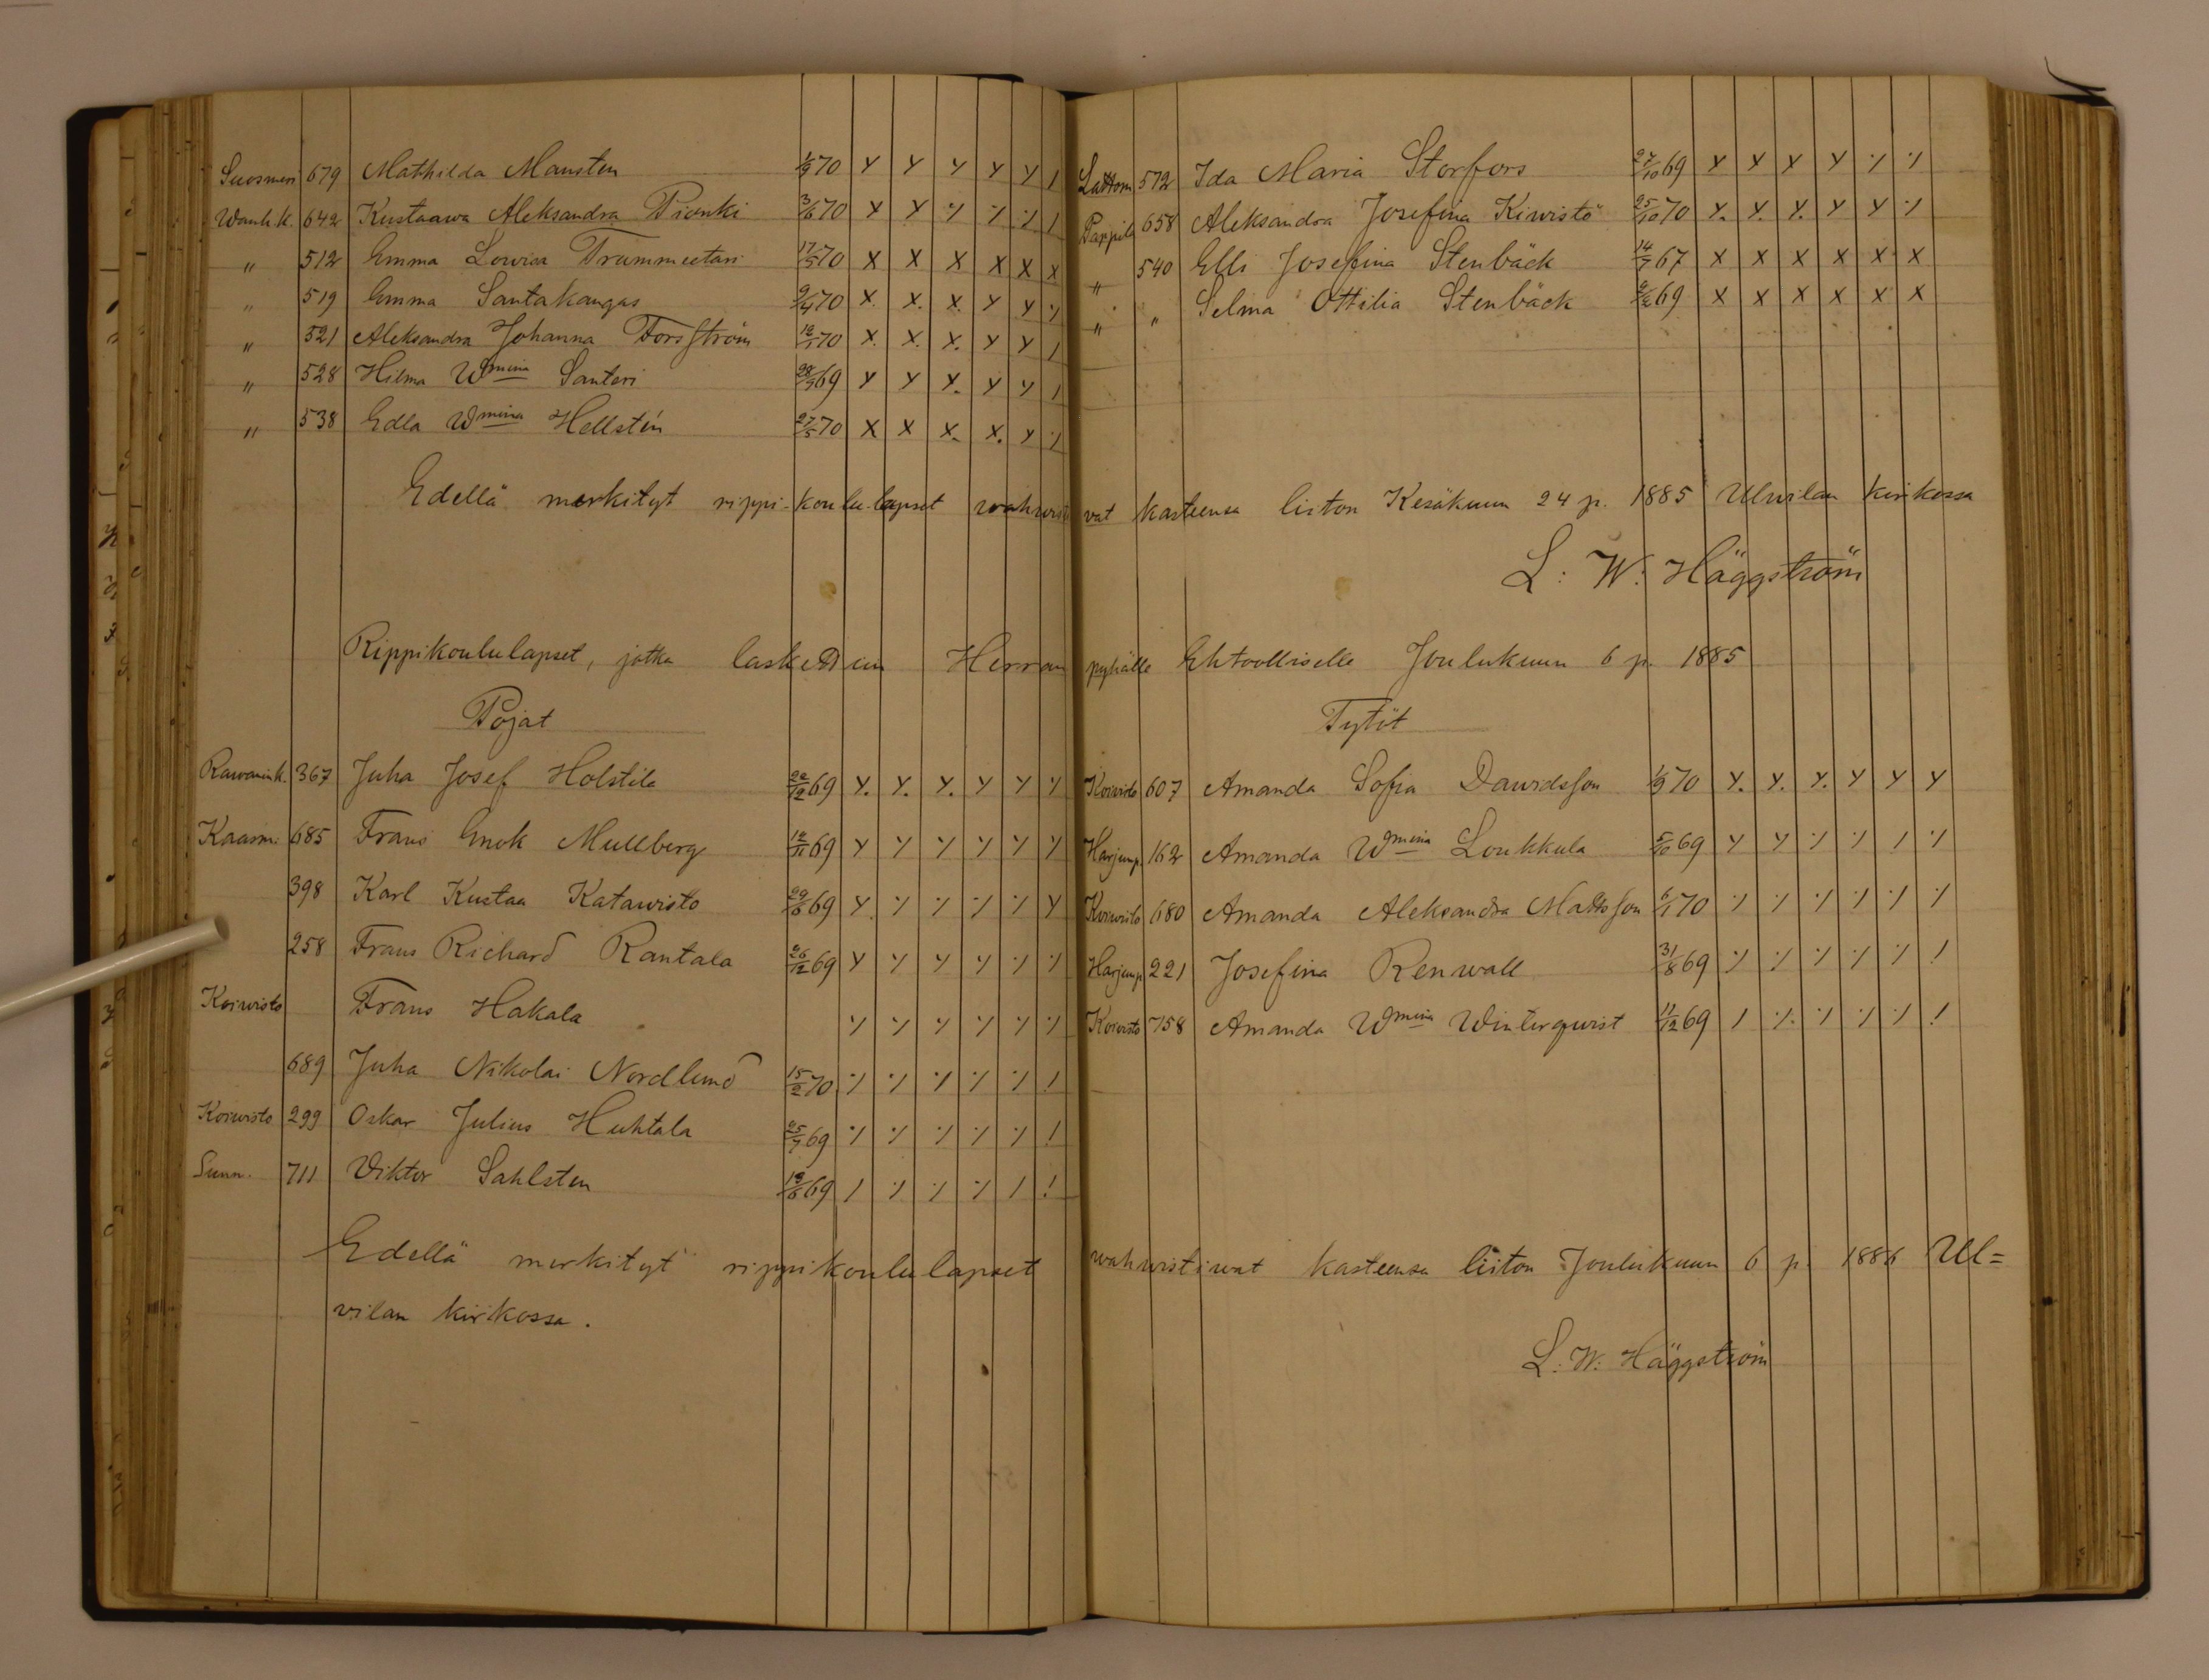 Suosmeri 679 Mathilda Mansten 1/9 70 Y Y Y Y Y /
Wanh.k. 642 Kustaawa Aleksandra Pionki 3/6 70 X X ٪ ٪ ٪ /
" 512 Emma Lowisa Trummeetari 17/5 70 X X X X X X
" 519 Emma Santakangas 9/4 70 X. X. X. Y Y ٪
" 521 Aleksandra Johanna Forsström 12/1 70 X. X. X. Y Y /
" 528 Hilma Wmina Santeri 28/9 69 Y Y Y. Y Y /
" 538 Edla Wmina Hellstén 27/5 70 X X X. X. Y ٪
Lattom 572 Ida Maria Storfors 27/10 69 Y X Y Y ٪ ٪
Pappil 658 Aleksandra Josefina Kiwistö 25/10 70 Y. Y. Y. Y Y ٪
" 540 Elli Josefina Stenbäck 14/7 67 X X X X X X
" " Selma Ottilia Stenbäck 69 X X X X X X
Edellä merkityt rippi-koulu-lapset wahwisti vat kasteensa liiton Kesäkuun 24 p. 1885 Ulwilan kirkossa
L. W. Häggström
Rippikoululapset, jotka laskettiin Herran pyhälle Ehtoolliselle Joulukuun 6 p. 1885
Pojat
Rawanink. 367 Juha Josef Holstila 22/12 69 Y. Y. Y. Y Y Y
Kaasm. 685 Frans Enok Mullberg 12/11 69 Y Y Y Y Y Y
398 Karl Kustaa Katawisto 29/6 69 Y. ٪ ٪ ٪ ٪ Y
258 Frans Richard Rantala 26/12 69 Y Y Y Y ٪ ٪
Koiwisto Frans Hakala ٪ ٪ Y ٪ ٪ ٪
689 Juha Nikolai Nordlund 15/2 70 ٪ ٪ ٪ ٪ ٪ !
Koiwisto 299 Oskar Julius Huhtala 25/7 69 ٪ ٪ ٪ ٪ ٪ !
Sunn. 711 Viktor Sahlsten 12/6 69 / ٪ ٪ ٪ / !
Tytöt
Koiwisto 607 Amanda Sofia Dawidsson 1/9 70 Y. Y. Y. Y Y Y
Harjunp. 162 Amanda Wmina Loukkula 5/10 69 Y Y ٪ ٪ / ٪
Koiwisto 680 Amanda Aleksandra Mattsson 6/1 70 ٪ ٪ ٪ ٪ ٪ ٪
Harjunp. 221 Josefina Renwall 31/8 69 ٪ ٪ ٪ ٪ ٪ !
Koiwisto 758 Amanda Wmina Winterqwist 11/12 69 / ٪ ٪ ٪ ٪ !
Edellä merkityt rippikoululapset wahwistiwat kasteensa liiton Joulukuun 6 p. 1886 Ul=
vilan kirkossa.
L. W. Häggström